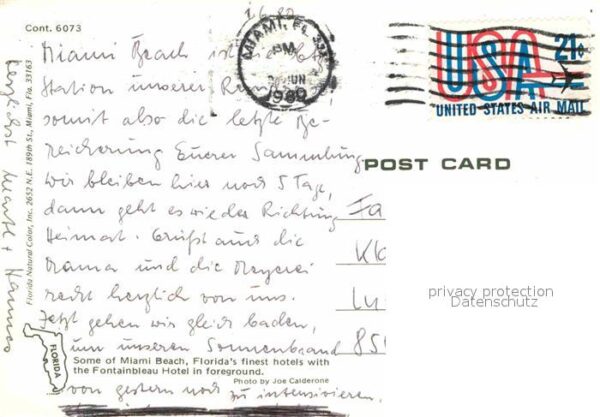 Cont. 6073
1.6.80
MIAMI, FL 331
PM
JUN
1980
21¢
USA
UNITED STATES AIR MAIL
POST CARD
Miami Beach ist die letzte
Station unserer
somit also die letzte Be-
reicherung Eurer Sammlung
wir bleiben hier noch 5 Tage,
dann geht es wieder Richtung
Heimat. Grüßt uns die
Mama und die
recht herzlich von uns.
Jetzt gehen wir gleich baden,
um unseren Sonnenbrand
von gestern noch zu intensivieren.
Herzlichst + Hannes
Fa
Kl
Lu
85
Florida Natural Color, Inc. 2652 N.E. 189th St., Miami, Fla. 33163
FLORIDA
Some of Miami Beach, Florida's finest hotels with
the Fontainbleau Hotel in foreground.
Photo by Joe Calderone
privacy protection
Datenschutz